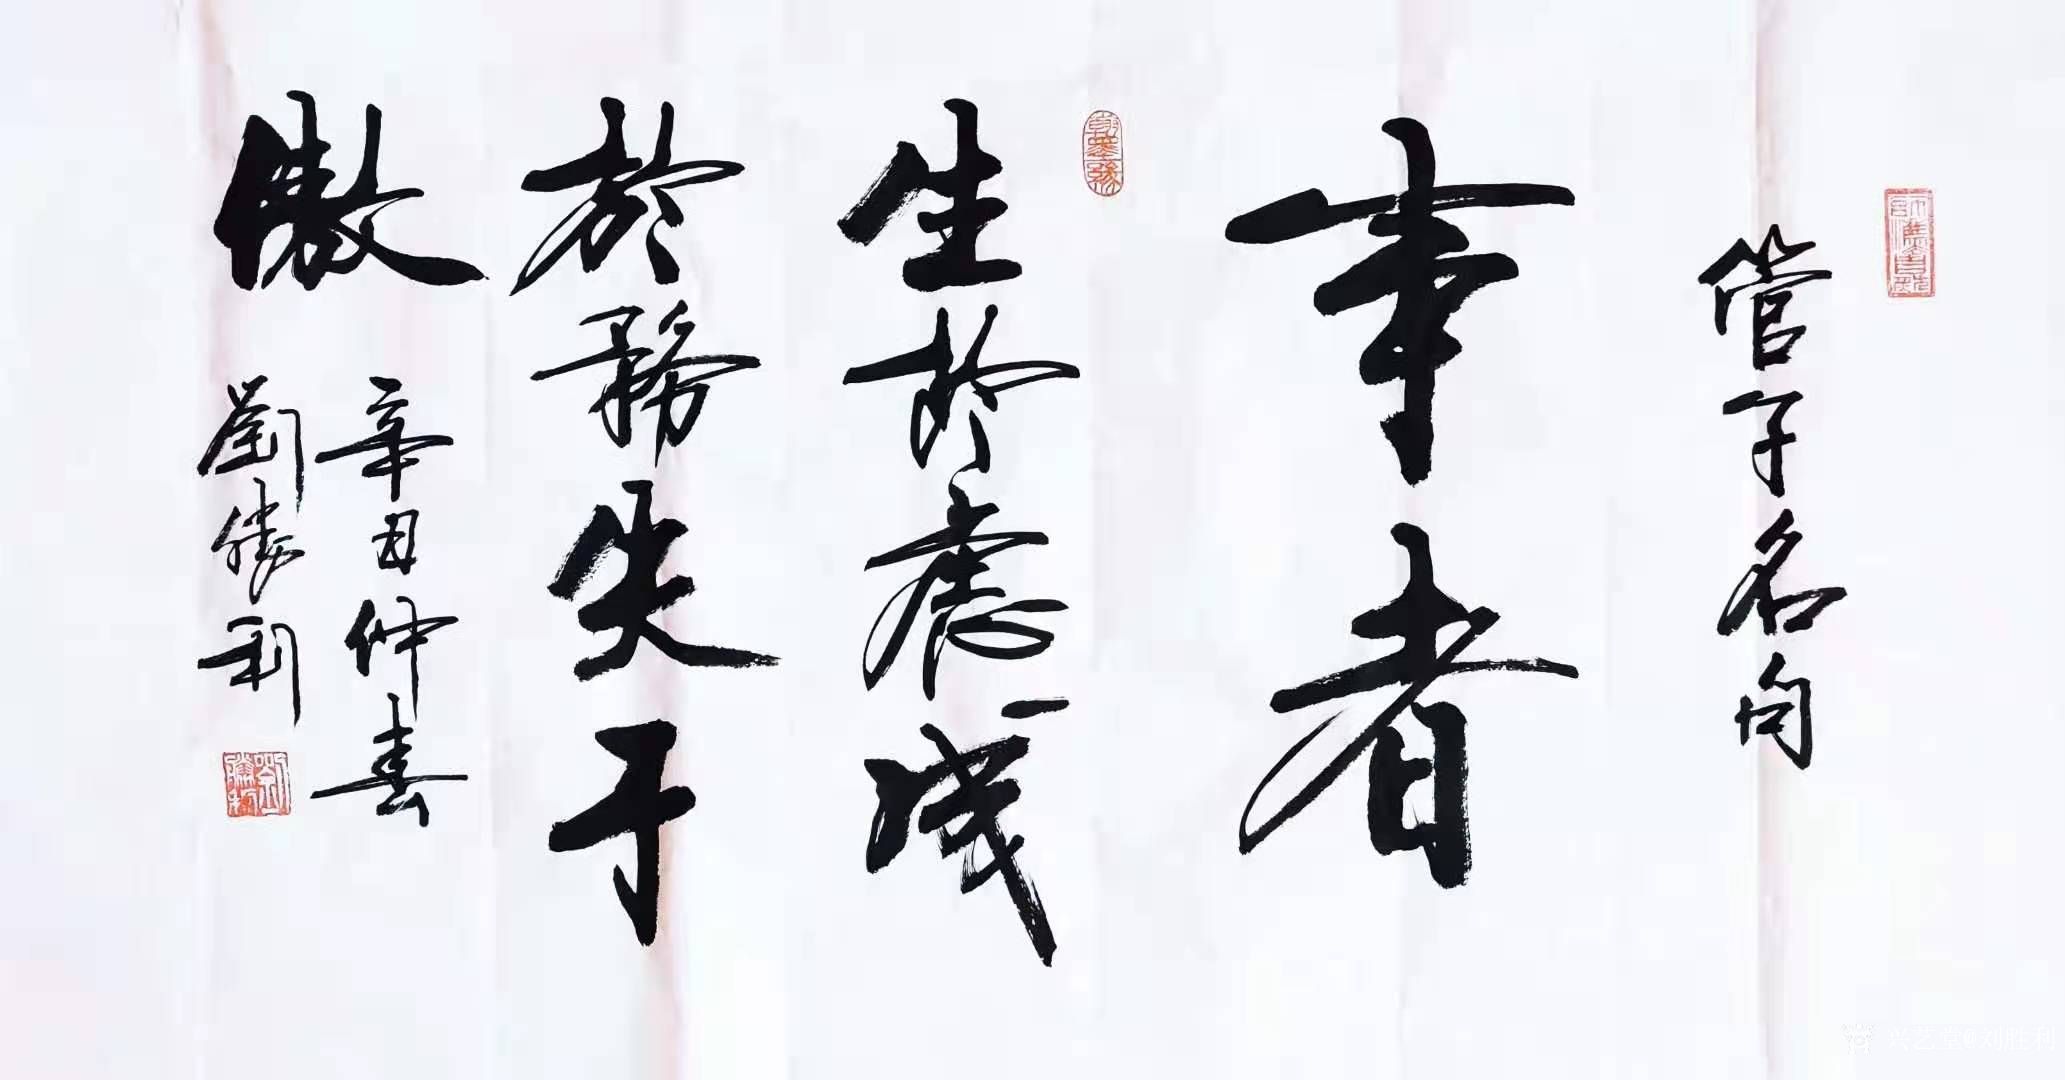 管子名句
事者
生於慮成
於務失于
傲
辛丑仲春
劉勝利
劉勝利
兴艺堂@刘胜利